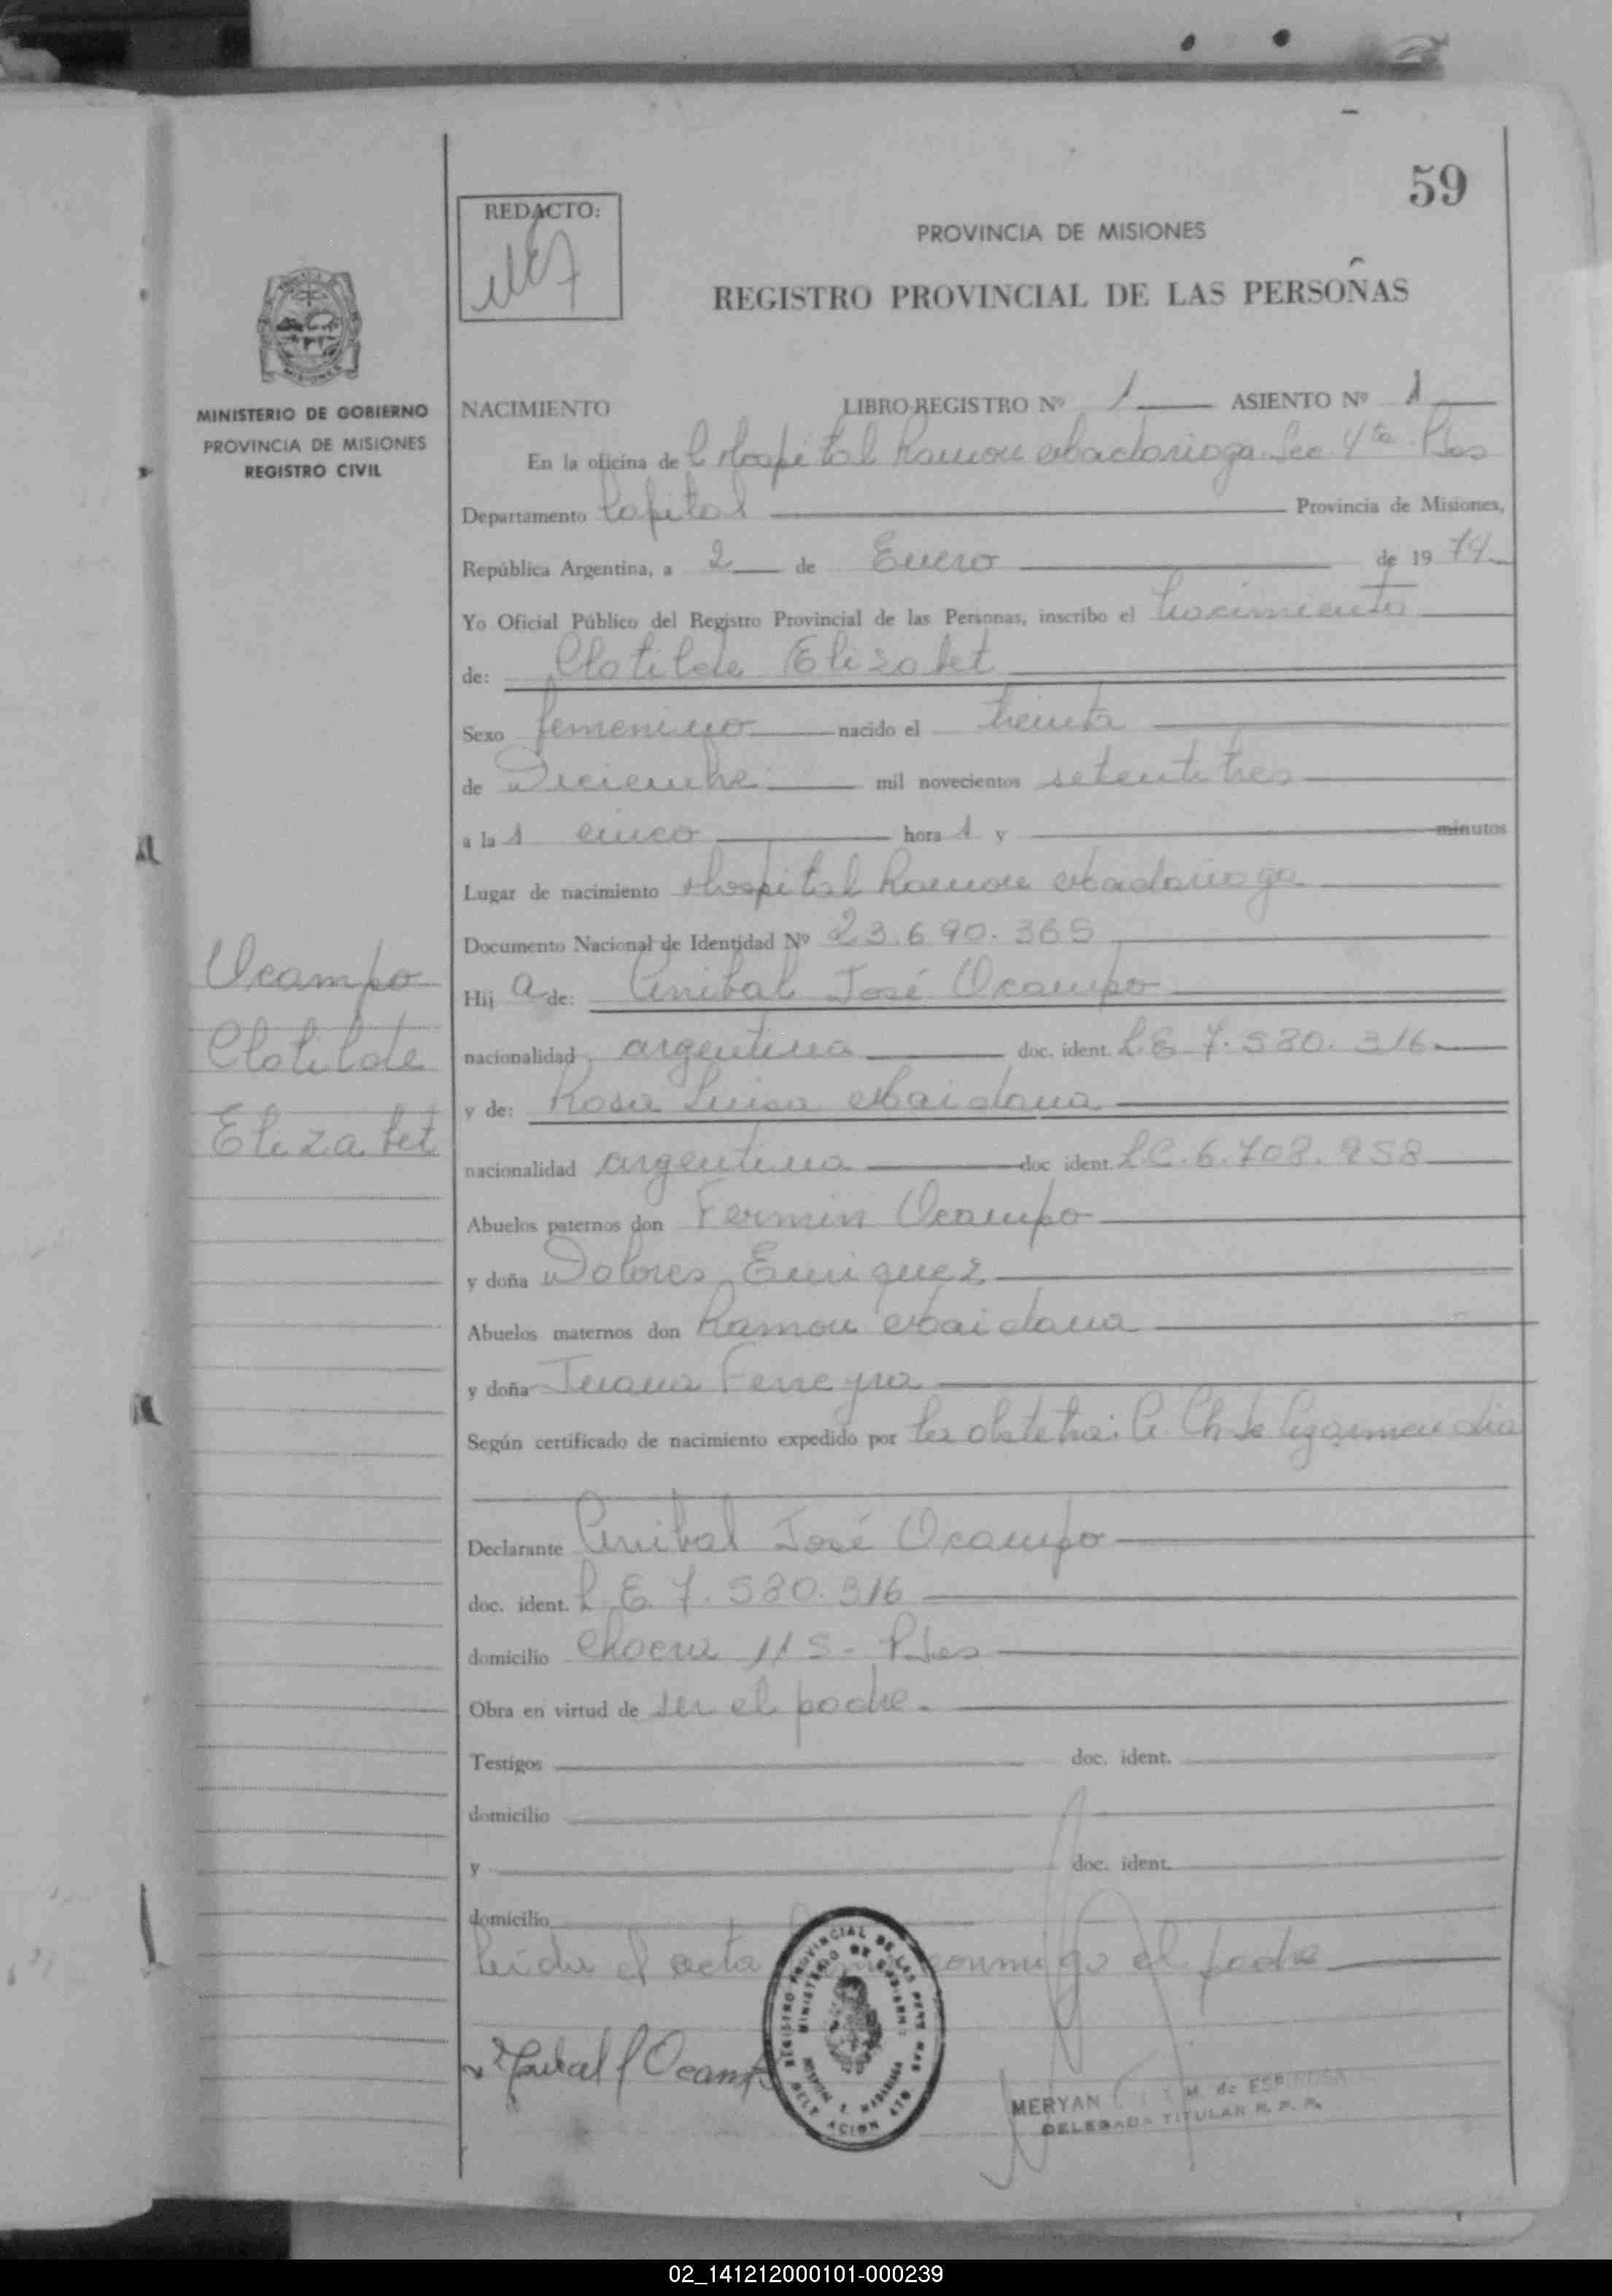 59
REDACTO:
PROVINCIA DE MISIONES
REGISTRO PROVINCIAL DE LAS PERSONAS
MINISTERIO DE GOBIERNO
PROVINCIA DE MISIONES
REGISTRO CIVIL
NACIMIENTO LIBRO REGISTRO Nº 1 ASIENTO Nº 1
En la oficina de Hospital Ramon Madariaga Sec 4ta. Pdas
Departamento Capital Provincia de Misiones,
República Argentina, a 2 de Enero de 1974
Yo Oficial Público del Registro Provincial de las Personas, inscribo el nacimiento
de: Clotilde Elizabet
Sexo femenino nacido el treinta
de Diciembre mil novecientos setentitres
a la s cinco hora s y minutos
Lugar de nacimiento Hospital Ramon Madariaga
Documento Nacional de Identidad Nº 23.690.365
Ocampo
Clotilde
Elizabet
Hij a de: Anibal José Ocampo
nacionalidad argentina doc. ident. L.E. 7.530.316
y de: Rosa Luisa Maidana
nacionalidad argentina doc ident. L.C. 6.708.958
Abuelos paternos don Fermin Ocampo
y doña Dolores Enriquez
Abuelos maternos don Ramon Maidana
y doña Juana Ferreyra
Según certificado de nacimiento expedido por la obstetra:
Declarante Anibal José Ocampo
doc. ident. L.E. 7.530.316
domicilio Chacra 115- Pdas
Obra en virtud de ser el padre.
Testigos doc. ident.
domicilio
y doc. ident.
domicilio
leida el acta conmigo el padre
Anibal J Ocampo
REGISTRO PROVINCIAL DE LAS PERSONAS
MINISTERIO DE GOBIERNO
HOSPITAL R. MADARIAGA
DELEGACION 4TA
MERYAN M. de ESPINOSA
DELEGADA TITULAR R. P. P.
02_141212000101-000239